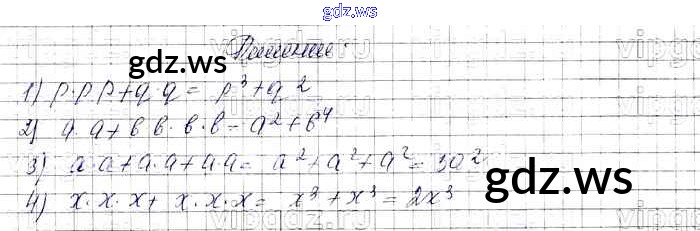 gdz.ws
Решение:
gdz.ws
1) p·p·p+q·q= p³+q²
2) a·a+b·b·b·b=a²+b⁴
3) a·a+a·a+a·a= a²+a²+a²=3a²
4) x·x·x+ x·x·x= x³+x³=2x³
gdz.ws